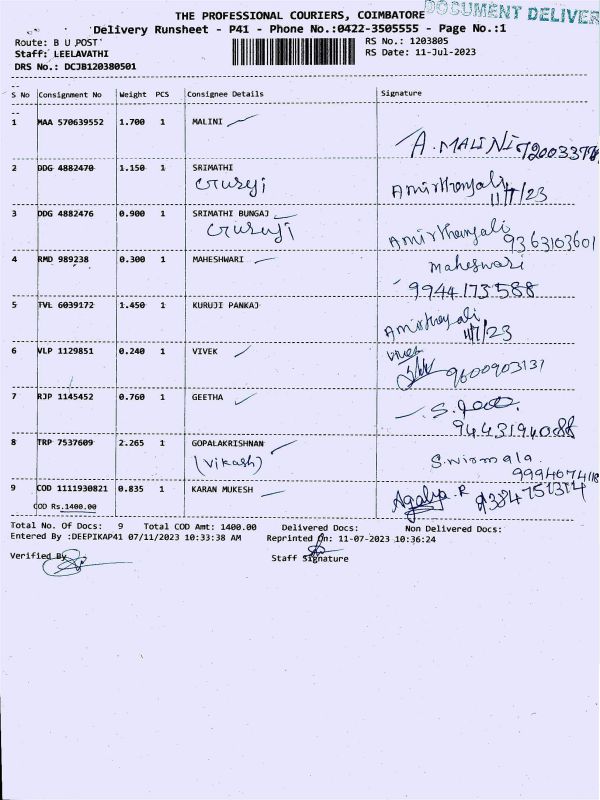 DOCUMENT DELIVER
THE PROFESSIONAL COURIERS, COIMBATORE
Delivery Runsheet - P41 - Phone No.:0422-3505555 - Page No.:1
Route: B U POST
RS No.: 1203805
Staff: LEELAVATHI
RS Date: 11-Jul-2023
DRS No.: DCJB120380501
S No Consignment No Weight PCS Consignee Details Signature
1 MAA 570639552 1.700 1 MALINI
A. MALINI
2 DDG 4882470 1.150 1 SRIMATHI
Amirthanjali
11/7/23
3 DDG 4882476 0.900 1 SRIMATHI BUNGAJ
Amirthanjali
9363103601
4 RMD 989238 0.300 1 MAHESHWARI
Maheswari
9944173588
5 TVL 6039172 1.450 1 KURUJI PANKAJ
11/7/23
6 VLP 1129851 0.240 1 VIVEK
Vivek
9600903131
7 RJP 1145452 0.760 1 GEETHA
8 TRP 7537609 2.265 1 GOPALAKRISHNAN
(Vikash)
S. Nirmala
9 COD 1111930821 0.835 1 KARAN MUKESH
Agalya. R
COD Rs.1400.00
Total No. Of Docs: 9 Total COD Amt: 1400.00 Delivered Docs: Non Delivered Docs:
Entered By :DEEPIKAP41 07/11/2023 10:33:38 AM Reprinted On: 11-07-2023 10:36:24
Verified By
Staff Signature